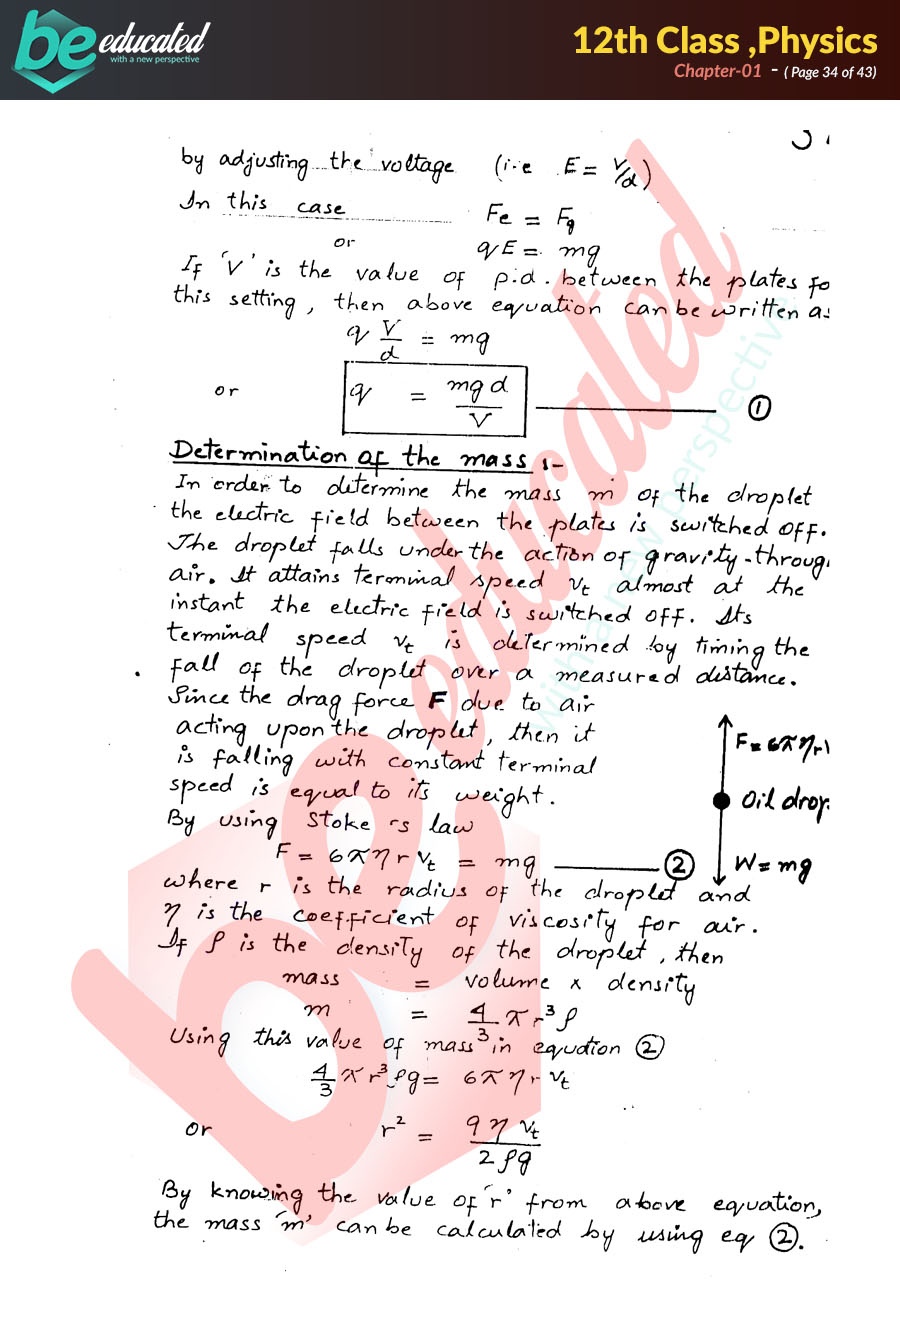 be educated
with a new perspective
12th Class ,Physics
Chapter-01 - ( Page 34 of 43)
by adjusting the voltage (i.e E = V/d)
In this case Fe = Fg
or qE = mg
If 'V' is the value of p.d. between the plates fo
this setting, then above equation can be written as
q V/d = mg
or q = mgd/V ①
Determination of the mass :-
In order to determine the mass m of the droplet
the electric field between the plates is switched off.
The droplet falls under the action of gravity throug
air. It attains terminal speed vt almost at the
instant the electric field is switched off. Its
terminal speed vt is determined by timing the
fall of the droplet over a measured distance.
Since the drag force F due to air
acting upon the droplet, then it
is falling with constant terminal
speed is equal to its weight.
By using Stoke's law
F = 6πηr vt = mg ②
F = 6πηr
Oil drop
W = mg
where r is the radius of the droplet and
η is the coefficient of viscosity for air.
If ρ is the density of the droplet, then
mass = volume x density
m = 4/3 π r³ ρ
Using this value of mass in equation ②
4/3 π r³ ρg = 6πηr vt
or r² = 9ηvt/2ρg
By knowing the value of 'r' from above equation,
the mass 'm' can be calculated by using eq ②.
be educated
with a new perspective